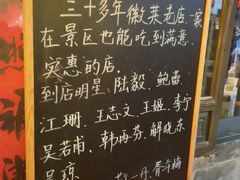 三十多年徽菜老店一家
在景区也能吃到满意、
实惠的店
到店明星：陆毅、鲍蕾
江珊、王志文、王姬、李宁
吴若甫、韩再芬、解晓东
吴琼